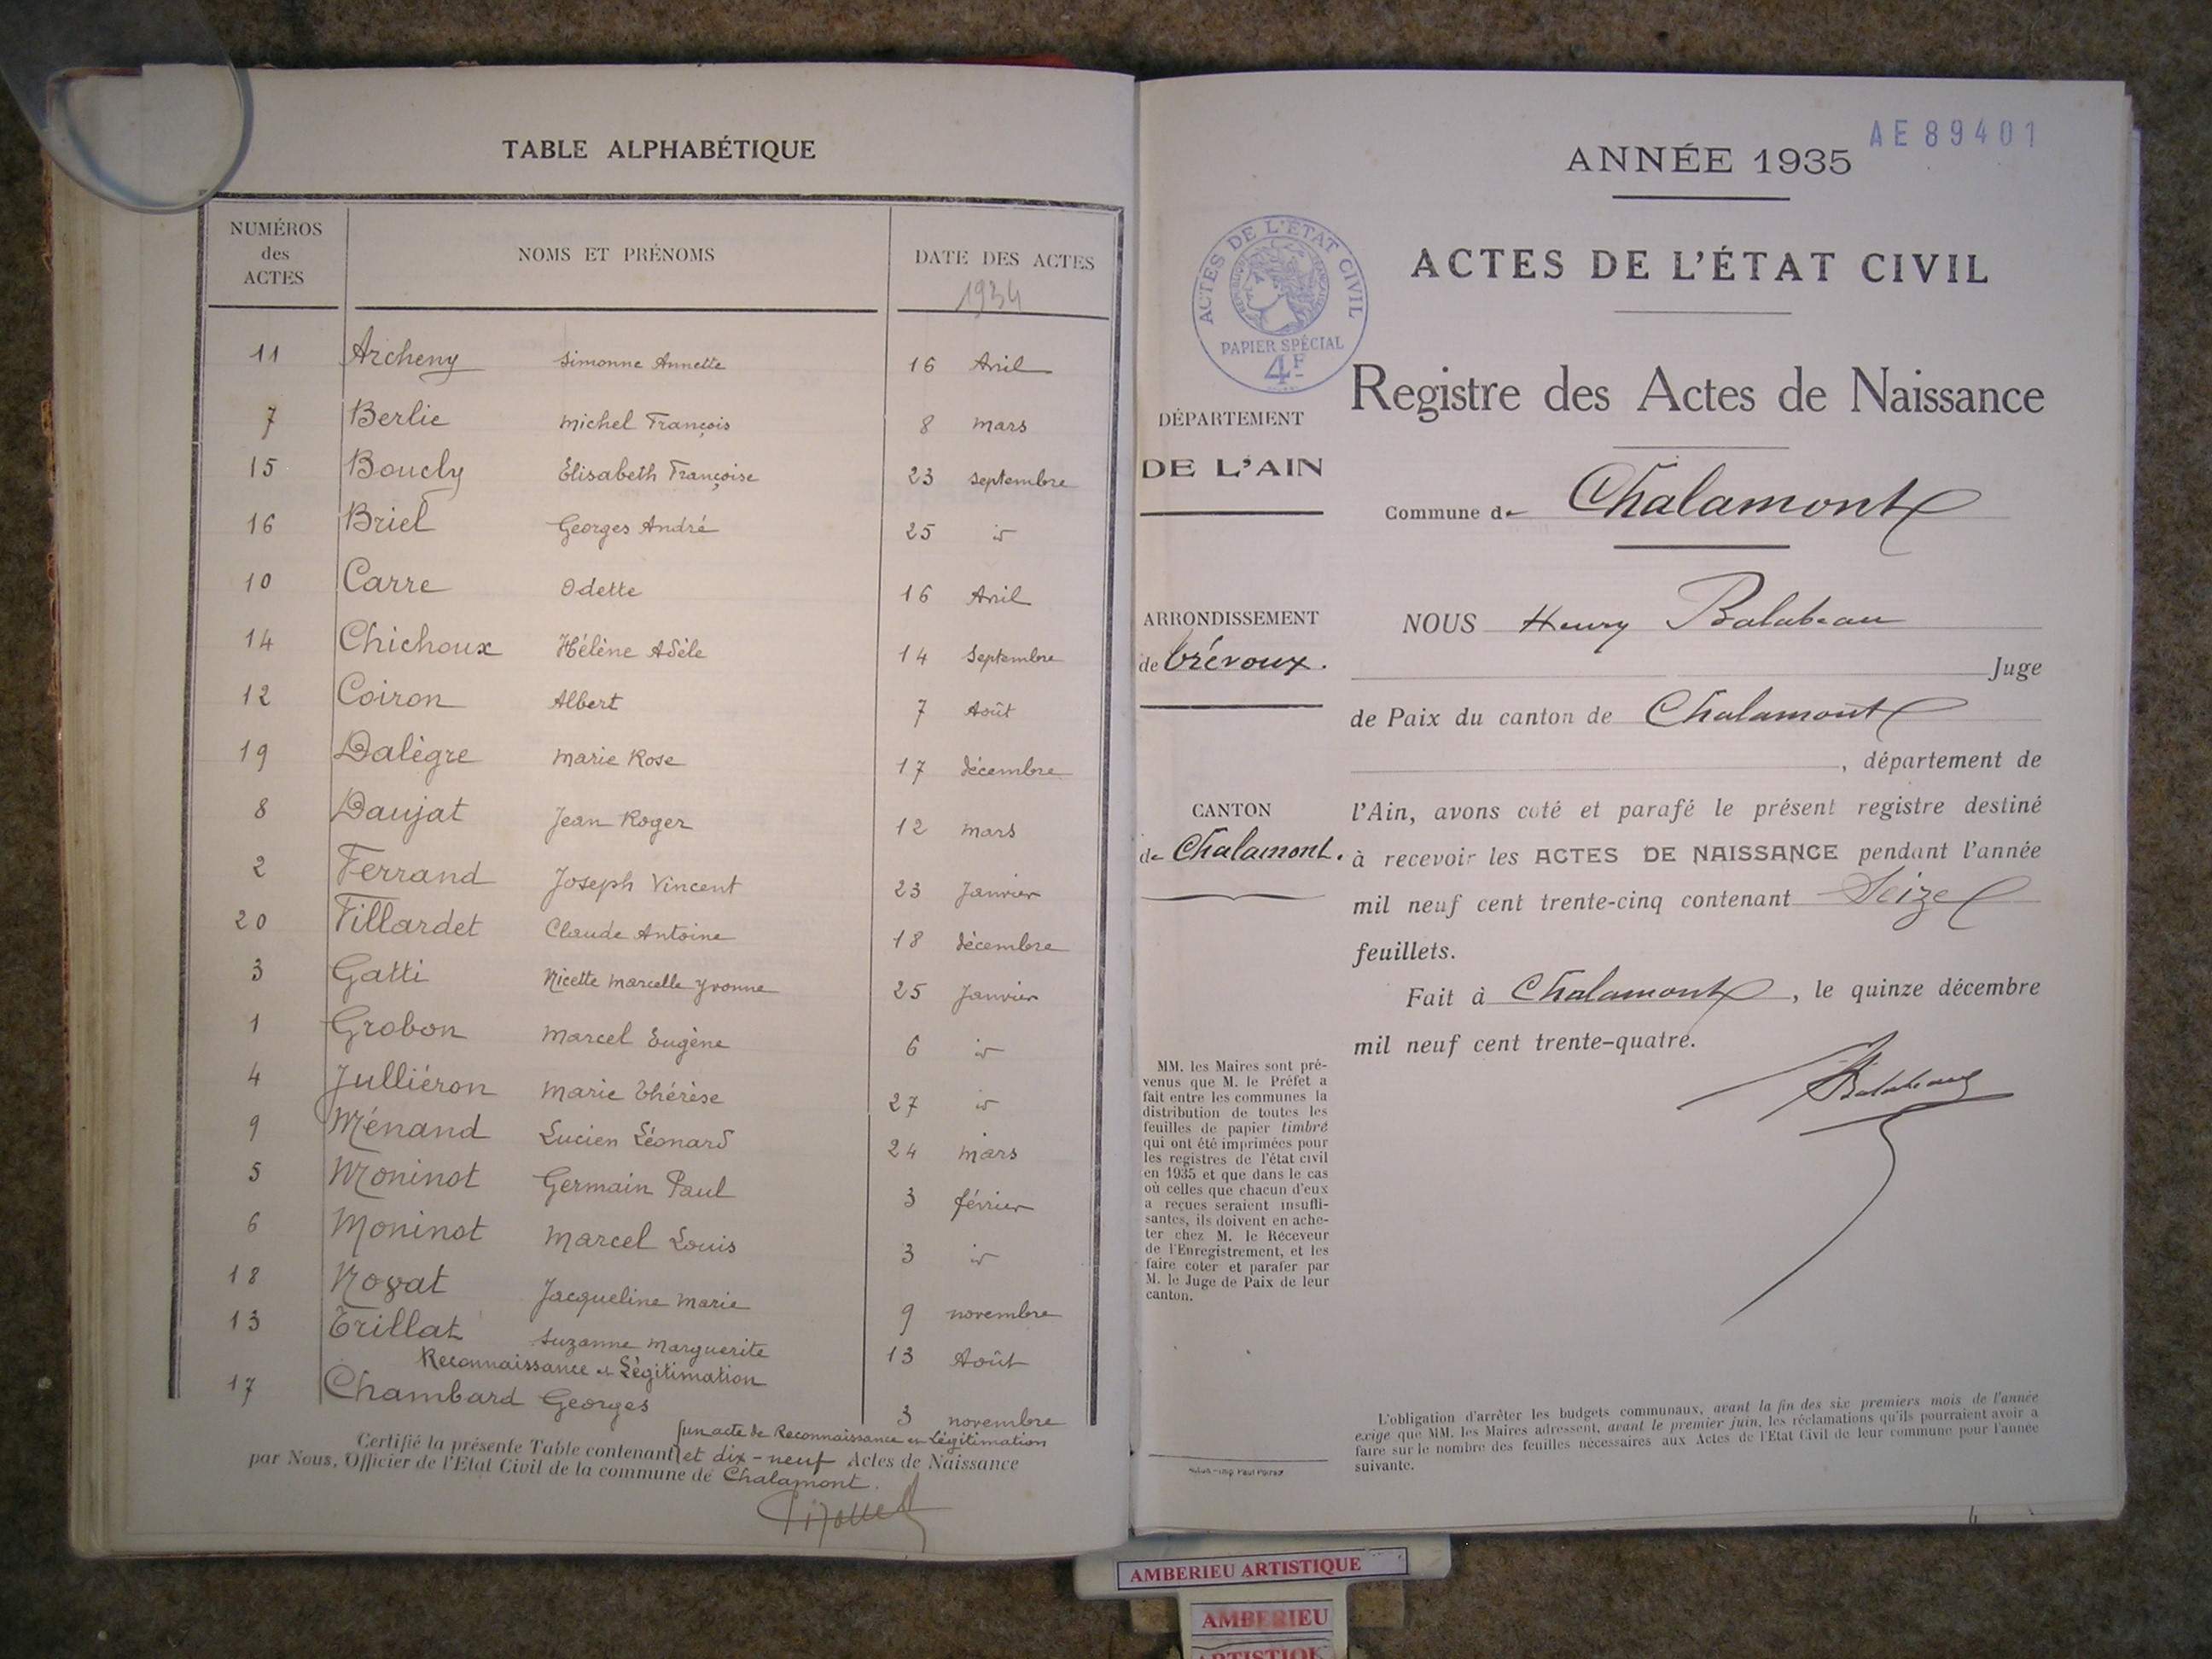 TABLE ALPHABÉTIQUE
NUMÉROS des ACTES NOMS ET PRÉNOMS DATE DES ACTES
1934
11 Archeny Simonne Annette 16 Avril
7 Berlie Michel François 8 mars
15 Boucly Elisabeth Françoise 23 septembre
16 Briel Georges André 25 id
10 Carre Odette 16 Avril
14 Chichoux Hélène Adèle 14 Septembre
12 Coiron Albert 7 Août
19 Dalègre Marie Rose 17 décembre
8 Daujat Jean Roger 12 mars
2 Ferrand Joseph Vincent 23 Janvier
20 Fillardet Claude Antoine 18 décembre
3 Gatti Nicette Marcelle Yvonne 25 Janvier
1 Grobon Marcel Eugène 6 id
4 Julliéron Marie Thérèse 27 id
9 Ménand Lucien Léonard 24 mars
5 Moninot Germain Paul 3 février
6 Moninot Marcel Louis 3 id
18 Jacqueline Marie 9 novembre
13 Trillat Suzanne Marguerite 13 Août
Reconnaissance et Légitimation
17 Chambard Georges 3 novembre
un acte de Reconnaissance et Légitimation
Certifié la présente Table contenant et dix-neuf Actes de Naissance
par Nous, Officier de l'Etat Civil de la commune de Chalamont.
AE89401
ANNÉE 1935
ACTES DE L'ÉTAT CIVIL
ACTES DE L'ÉTAT CIVIL
RÉPUBLIQUE FRANÇAISE
PAPIER SPÉCIAL
4F
Registre des Actes de Naissance
DÉPARTEMENT
DE L'AIN
Commune de Chalamont
ARRONDISSEMENT
de Trévoux.
CANTON
de Chalamont.
NOUS Henry Balabeau
Juge
de Paix du canton de Chalamont
, département de
l'Ain, avons coté et parafé le présent registre destiné
à recevoir les ACTES DE NAISSANCE pendant l'année
mil neuf cent trente-cinq contenant Seize
feuillets.
Fait à Chalamont, le quinze décembre
mil neuf cent trente-quatre.
Balabeau
MM. les Maires sont pré-
venus que M. le Préfet a
fait entre les communes la
distribution de toutes les
feuilles de papier timbré
qui ont été imprimées pour
les registres de l'état civil
en 1935 et que dans le cas
où celles que chacun d'eux
a reçues seraient insuffi-
santes, ils doivent en ache-
ter chez M. le Réceveur
de l'Enregistrement, et les
faire coter et parafer par
M. le Juge de Paix de leur
canton.
L'obligation d'arrêter les budgets communaux, avant la fin des six premiers mois de l'année
exige que MM. les Maires adressent, avant le premier juin, les réclamations qu'ils pourraient avoir à
faire sur le nombre des feuilles nécessaires aux Actes de l'Etat Civil de leur commune pour l'année
suivante.
AMBERIEU ARTISTIQUE
AMBERIEU